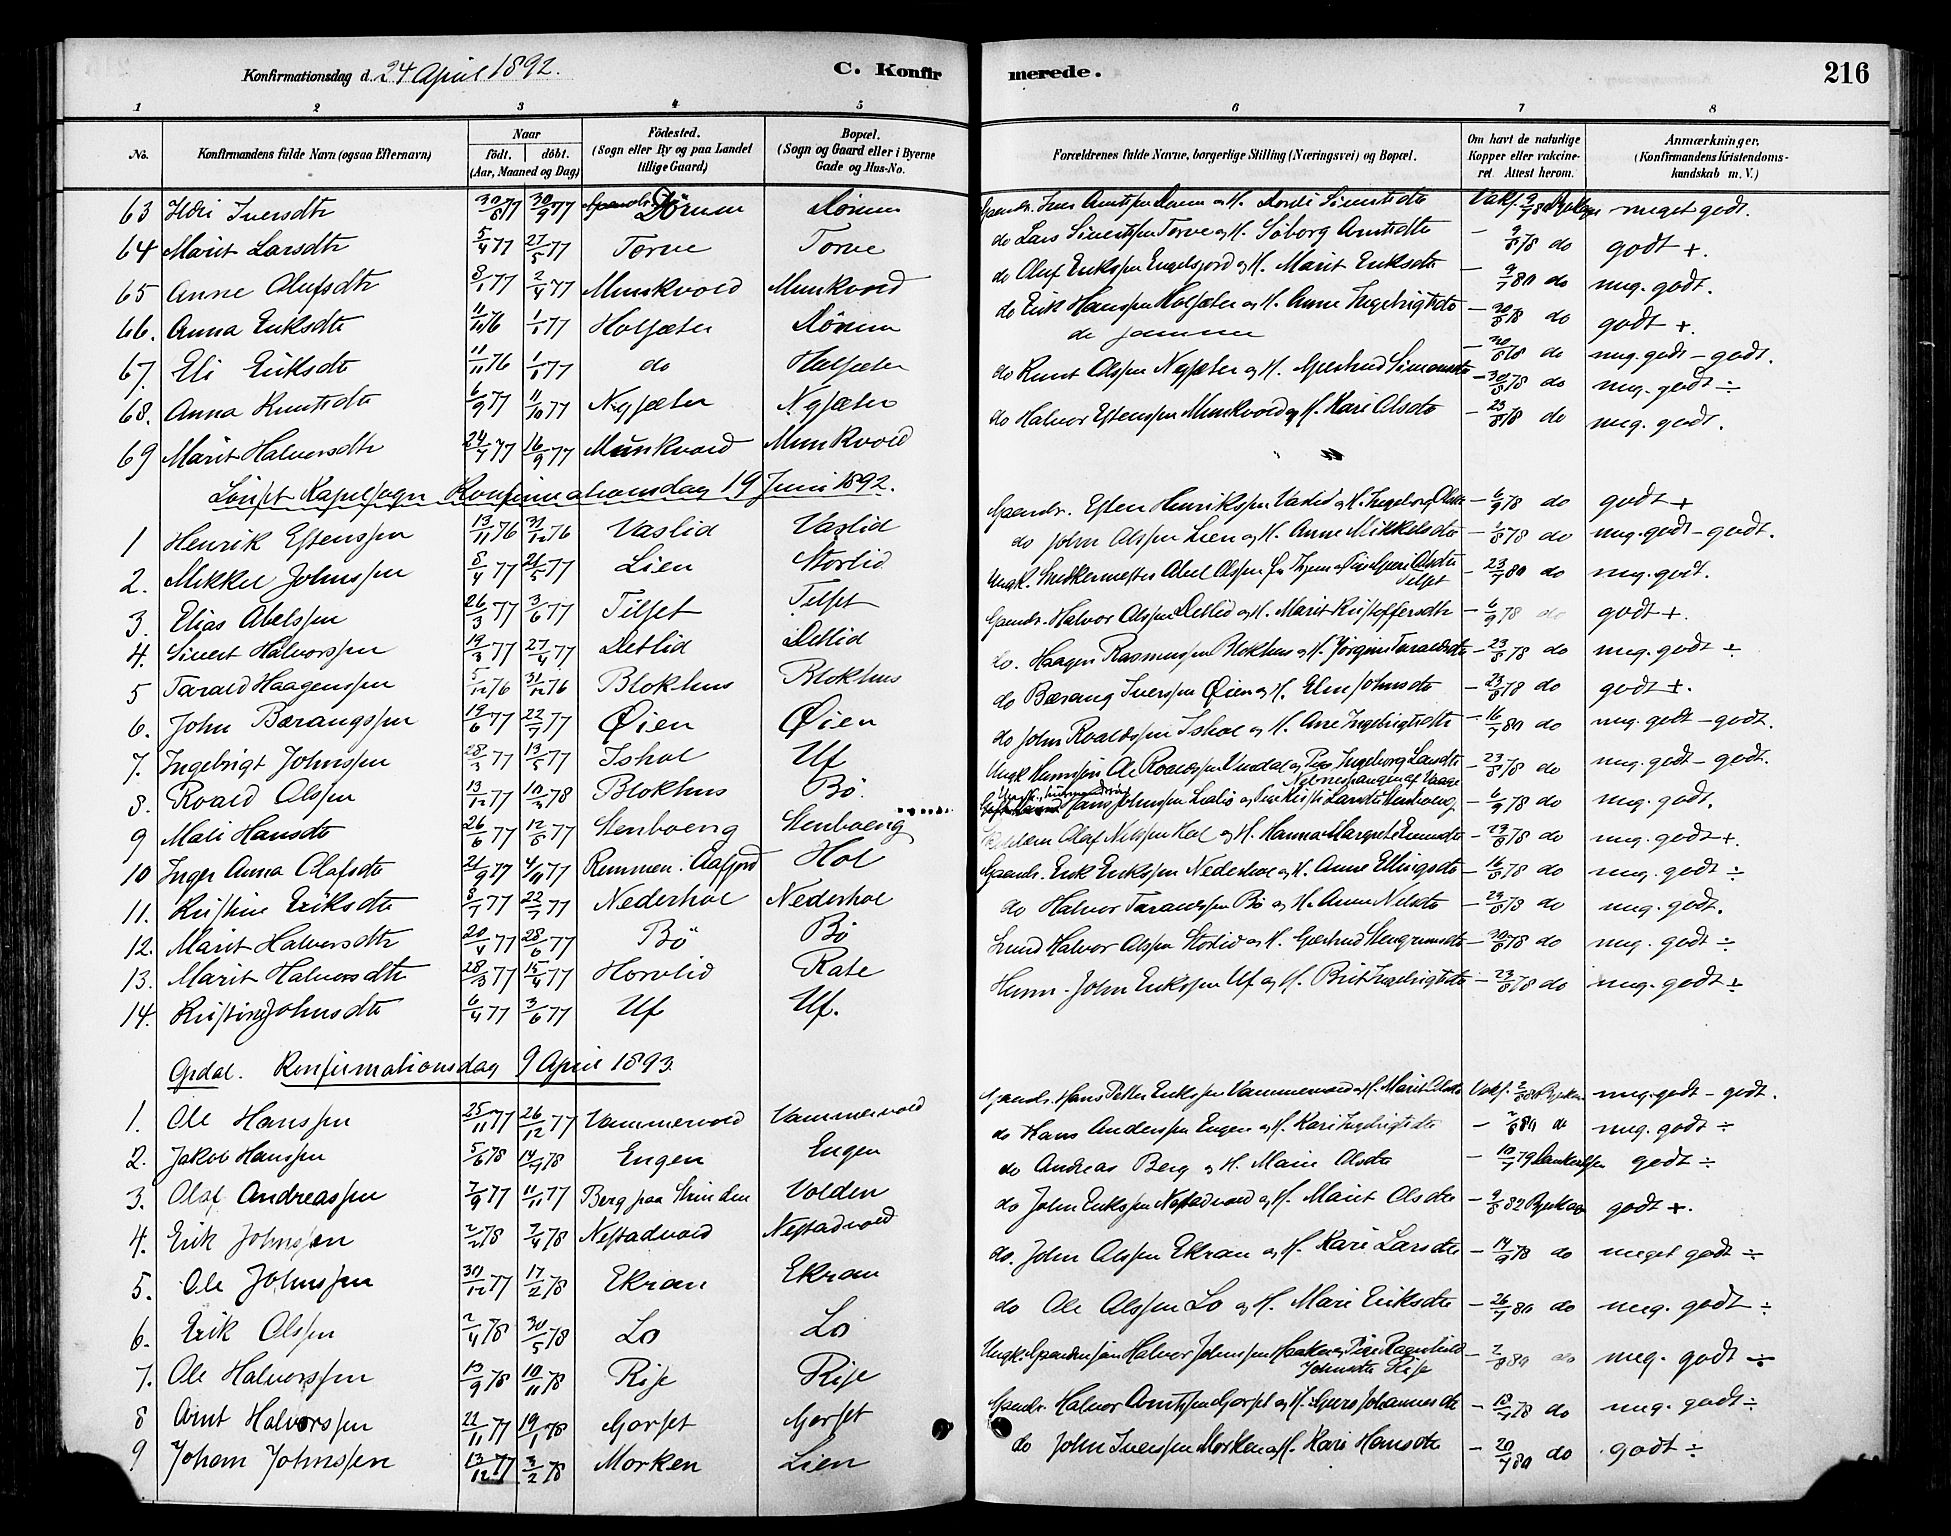 Konfirmationsdag d. 24 April 1892. C. Konfirmerede. 216
1 2 3 4 5 6 7 8
No. Konfirmandens fulde Navn (ogsaa Efternavn) Naar födt. döbt. (Aar, Maaned og Dag) Födested. (Sogn eller By og paa Landet tillige Gaard) Bopæl. (Sogn og Gaard eller i Byerne Gade og Hus-No. Forældrenes fulde Navne, borgerlige Stilling (Næringsvei) og Bopæl. Om havt de naturlige Kopper eller vakcineret. Attest herom. Anmærkninger. (Konfirmandens Kristendomskundskab m. V.)
63 Iversdtr 30/8 77 30/9 77 meget godt.
64 Marit Larsdtr 5/4 77 27/5 77 Torve Torve do Lars Sivertssen Torve og H. Söborg Arntsdtr - 9/8 78 do godt +.
65 Anne Olufsdtr 8/1 77 2/4 77 Munkvold Munkvold do Oluf Erikssen Engelsjord og H. Marit Eriksdtr - 9/7 80 do meg. godt.
66. Anna Eriksdtr 11/11 76 1/1 77 Holsæter do Erik Hanssen Holsæter og H. Anne Ingebrigtsdtr - 30/8 78 do godt +.
67. Eli Eriksdtr 11/11 76 1/1 77 do Holsæter de samme - 30/8 78 do meg. godt - godt.
68. Anna Knutsdtr 6/9 77 11/10 77 Nysæter Nysæter do Knut Olssen Nysæter og H. Gjertrud Simonsdtr - 30/8 78 do meg. godt ÷
69 Marit Halvorsdtr 24/7 77 16/9 77 Munkvold Munkvold do Halvor Estenssen Munkvold og H. Kari Olsdtr - 23/8 78 do meg. godt.
Lönset Kapelsogn Konfirmationsdag 19 Juni 1892.
1 Henrik Estenssen 13/11 76 31/12 76 Vaslid Vaslid Gaardbr. Esten Henrikssen Vaslid og H. Ingeborg Olsdtr - 6/9 78 do godt +
2. Mikkel Johnssen 8/4 77 21/5 77 Lien Storlid do John Olssen Lien og H. Anne Mikkelsdtr - 78 do meg. godt - godt.
3. Elias Abelssen 26/3 77 3/6 77 Tilset Tilset - 23/7 80 do meg. godt.
4. Sivert Halvorssen 19/3 77 27/4 77 Detlid Detlid Gaardbr. Halvor Olssen Detlid og H. Marit Kristoffersdtr - 6/9 78 do godt +.
5 Tarald Haagenssen 5/12 76 31/12 76 Blokhus Blokhus do. Haagen Rasmussen Blokhus og H. Jörgine Taraldsdtr - 23/8 78 do meg. godt ÷
6. John Bærangssen 19/6 77 22/7 77 Øien Øien do Bærang Iverssen Øien og H. Elen Johnsdtr - 23/8 78 do godt +.
7. Ingebrigt Johnssen 28/3 77 13/5 77 Ishol Uf do John Roaldssen Ishol og H. Ane Ingebrigtsdtr - 16/7 80 do meg. godt - godt.
8. Roald Olssen 13/12 77 10/3 78 Blokhus Bö Ole Roaldssen og Pige Ingeborg Larsdtr - 23/8 78 do meg. godt - godt.
9 Mali Hansdtr 26/6 77 12/8 77 Stenboeng Stenboeng Hans Johnssen og Pige Kirsti Larsdtr Stenboeng - 6/9 78 do meg. godt.
10 Inger Anna Olafsdtr 21/9 77 4/11 77 Remmen. Aafjord Hol Olaf Nilssen Hol og H. Hanna Margrete - 23/8 78 do meg. godt +.
11. Kristine Eriksdtr 8/7 77 22/7 77 Nederhol Nederhol Gaardbr. Erik Erikssen Nederhol og H. Anne Ellingsdtr - 16/8 78 do meg. godt ÷
12. Marit Halvorsdtr 20/4 77 28/6 77 Bö Bö do Halvor Taraldssen Bö og H. Anne Nilsdtr - 23/8 78 do meg. godt.
13. Marit Halvorsdtr 28/3 77 15/4 77 Horvlid Rate Halvor Olssen Storlid og H. Gjertrud - 30/8 78 do meg. godt ÷
14. Kristine Johnsdtr 6/4 77 3/6 77 Uf Uf. Husm. John Erikssen Uf og H. Brit Ingebrigtsdtr - 23/8 78 do meg. godt ÷
Opdal. Konfirmationsdag 9 April 1893.
1. Ole Hanssen 25/11 77 26/12 77 Vammervold Vammervold Gaardbr. Hans Petter Erikssen Vammervold og H. Marit Olsdtr meg. godt - godt.
2. Jakob Hanssen 5/6 78 14/7 78 Engen Engen do Hans Anderssen Engen og H. Kari Ingebrigtsdtr - 80 do meg. godt ÷
3. Olaf Andreassen 7/9 77 11/11 77 Berg paa Strinden Volden do Andreas Berg og H. Marie Olsdtr - 10/7 79 godt ÷
4. Erik Johnssen 2/2 78 7/4 78 Nestadvold Nestadvold do John Erikssen Nestadvold og H. Marit Olsdtr - 9/8 82 godt +.
5. Ole Johnssen 30/12 77 17/2 78 Ekran Ekran do. John Olssen Ekran og H. Kari Larsdtr - 14/9 78 do meget godt ÷
6. Erik Olssen 2/4 78 30/5 78 Lo Lo do Ole Olssen Lo og H. Mari Eriksdtr - 26/7 80 do meg. godt ÷
7. Ole Halvorssen 13/9 78 10/11 78 Rise Rise Ungk. Halvor Johnssen og Pige Ragnhild Johnsdtr Rise - 80 do meg. godt ÷
8 Arnt Halvorssen 22/11 77 19/1 78 Gorset Gorset Gaardbr. Halvor Arntssen Gorset og H. Guro Johannesdtr - 78 do meg. godt ÷
9 Johan Johnssen 13/12 77 3/2 78 Morken Lien do John Iverssen Morken og H. Kari Hansdtr - 20/7 80 do godt ÷